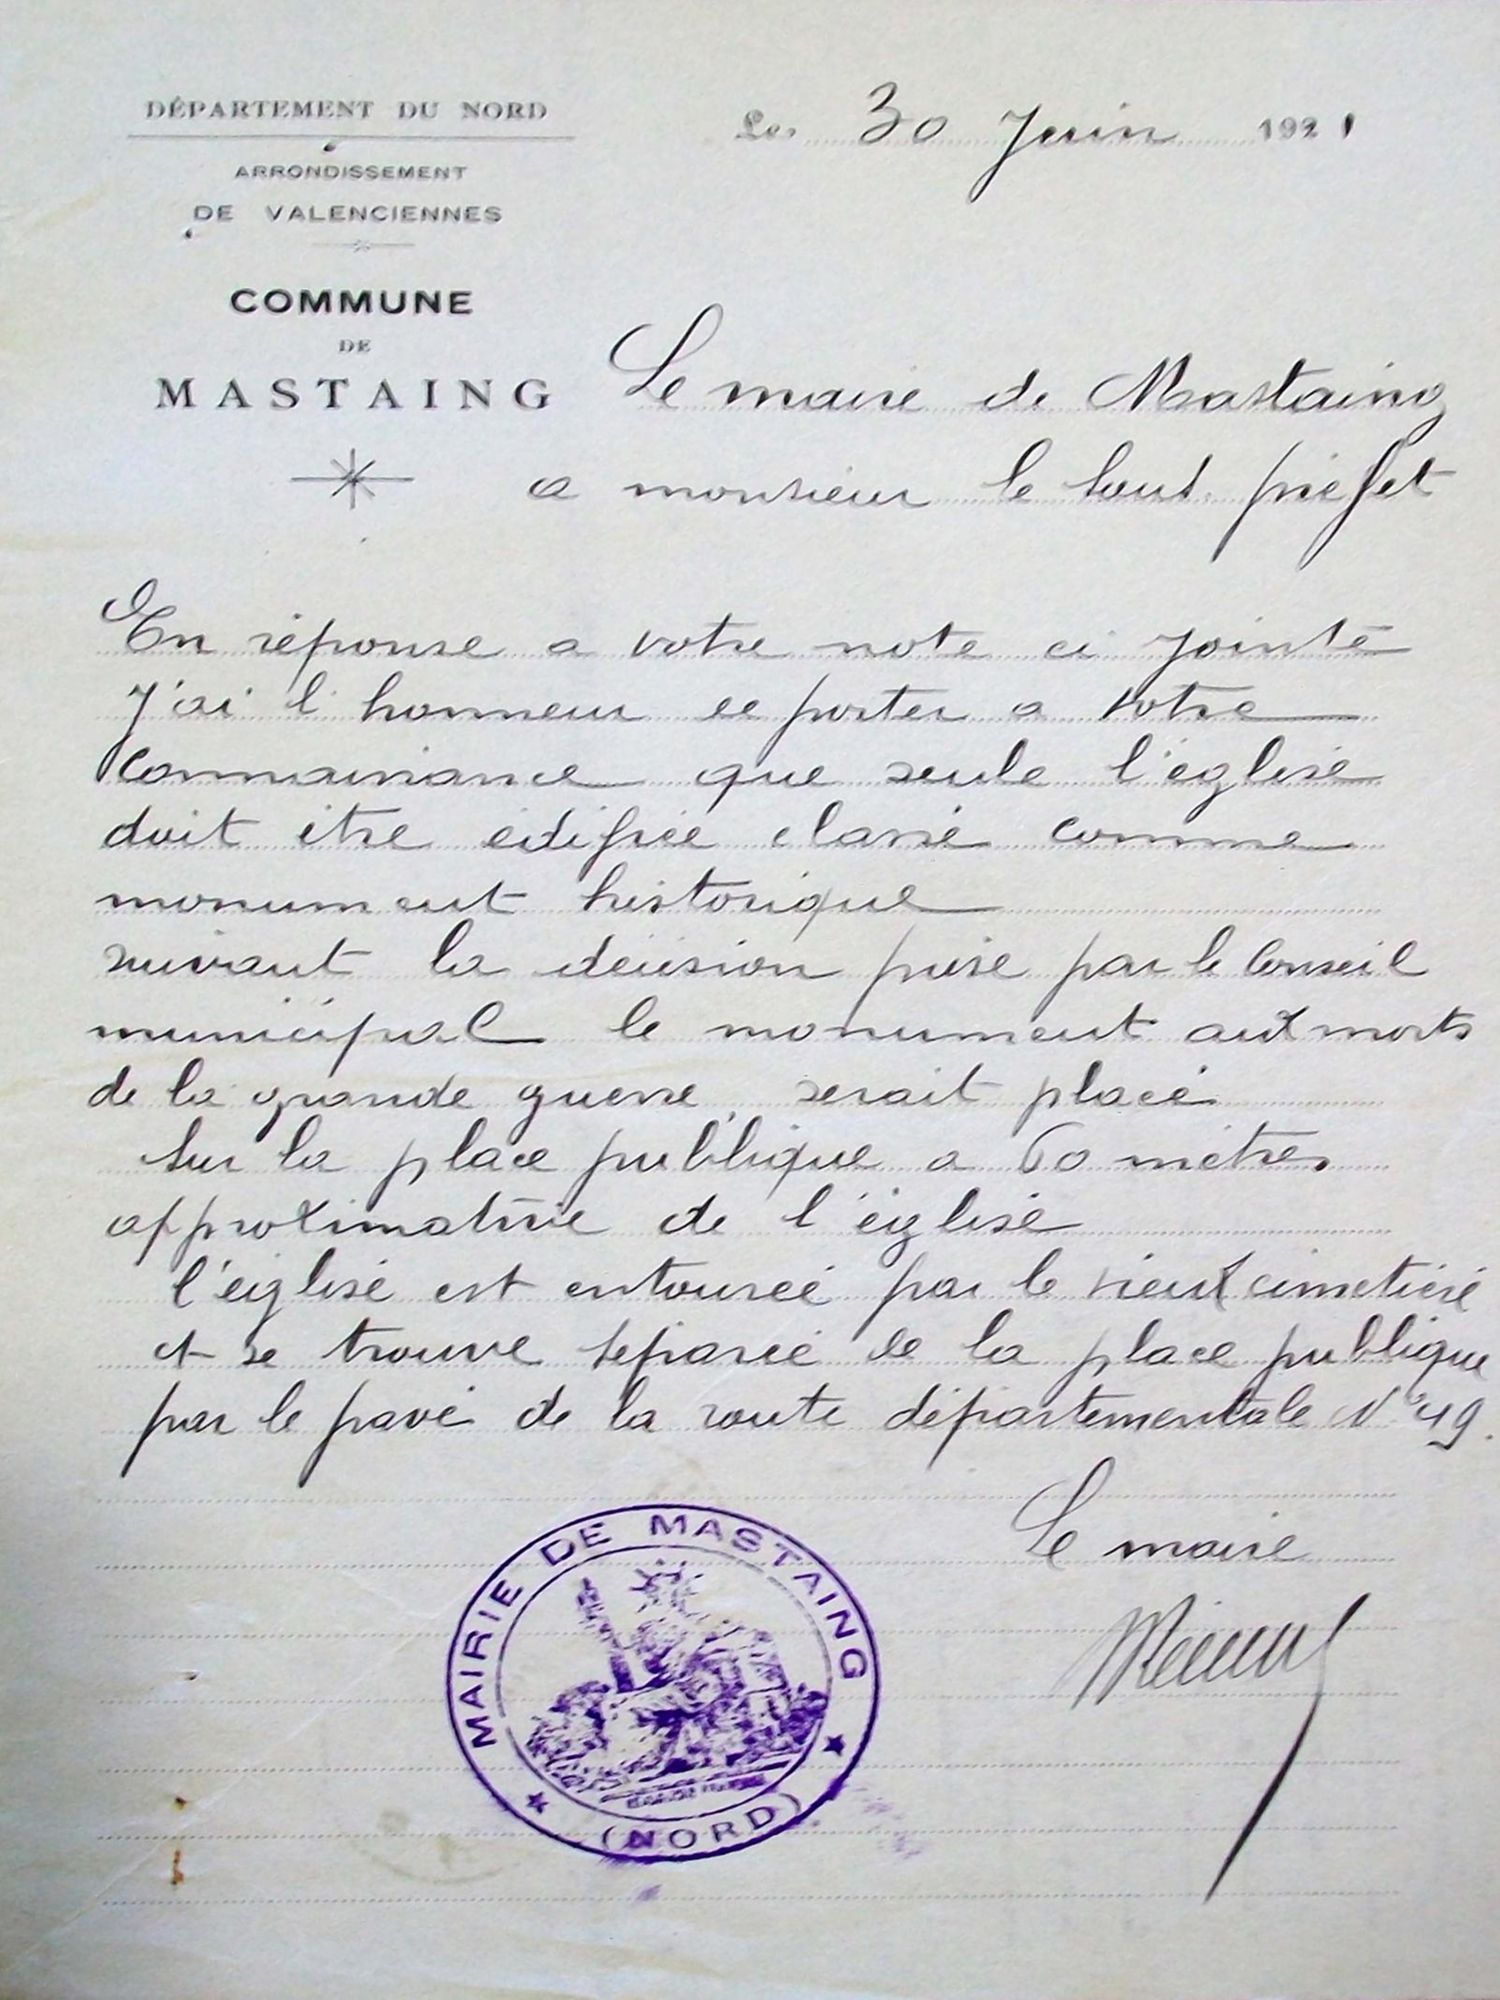 DÉPARTEMENT DU NORD
Le 30 Juin 1921
ARRONDISSEMENT
DE VALENCIENNES
COMMUNE
DE
MASTAING
Le maire de Mastaing
a monsieur le sous. préfet
En réponse a votre note ci jointe
J'ai l'honneur de porter a votre
connaissance que seule l'église
doit être édifiée classé comme
monument historique
suivant la décision prise par le Conseil
municipal le monument aux morts
de la grande guerre, serait placé
sur la place publique a 60 mètres
approximative de l'église
l'église est entourée par le vieux cimetière
et se trouve séparée de la place publique
par le pavé de la route départementale N° 49.
Le maire
MAIRIE DE MASTAING
(NORD)